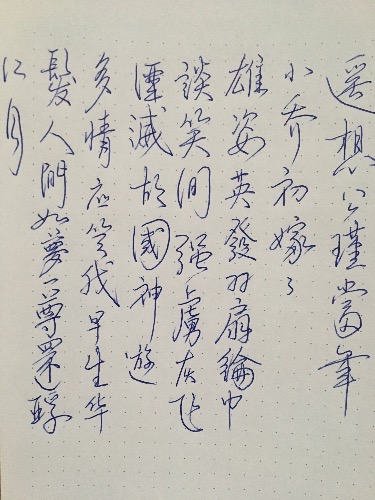 遥想公瑾當年
小乔初嫁了
雄姿英發羽扇綸巾
談笑间强虜灰飞
湮滅故國神遊
多情应笑我早生华
髮人間如夢一尊還酹
江月